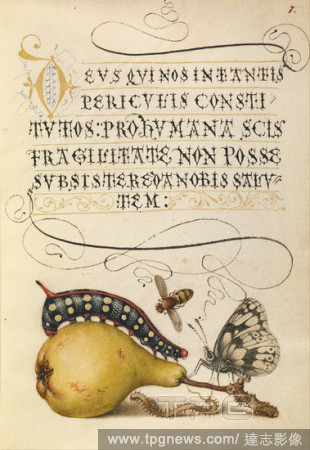 7.
DEUS QUI NOS IN TANTIS
PERICULIS CONSTI
TUTOS: PRO HUMANA SCIS
FRAGILITATE NON POSSE
SUBSISTERE DA NOBIS SALU
TEM:
TPG
www.tpgnews.com/ 達志影像